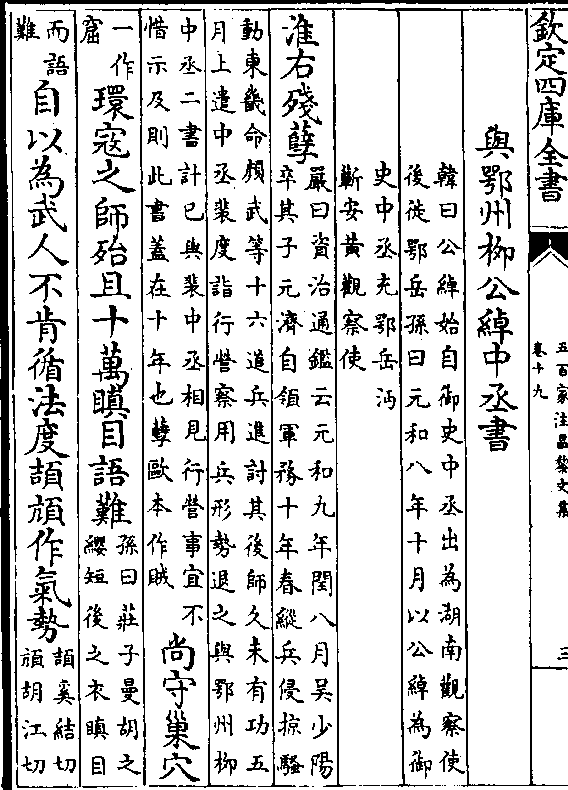 欽定四庫全書
五百家注昌黎文集
卷十九
三
與鄂州柳公綽中丞書
韓曰公綽始自御史中丞出為湖南觀察使
後徙鄂岳孫曰元和八年十月以公綽為御
史中丞充鄂岳沔
蘄安黃觀察使
淮右殘孽
嚴曰資治通鑑云元和九年閏八月吳少陽
卒其子元濟自領軍務十年春縱兵侵掠騷
動東畿命顏武等十六道兵進討其後師久未有功五
月上遣中丞裴度詣行營察用兵形勢退之與鄂州柳
中丞二書計已與裴中丞相見行營事宜不
惜示及則此書蓋在十年也孽歐本作賊
尚守巢穴
一作
窟
環寇之師殆且十萬瞋目語難
孫曰莊子曼胡之
纓短後之衣瞋目
而語
難
自以為武人不肯循法度頡頏作氣勢
頡奚結切
頏胡江切